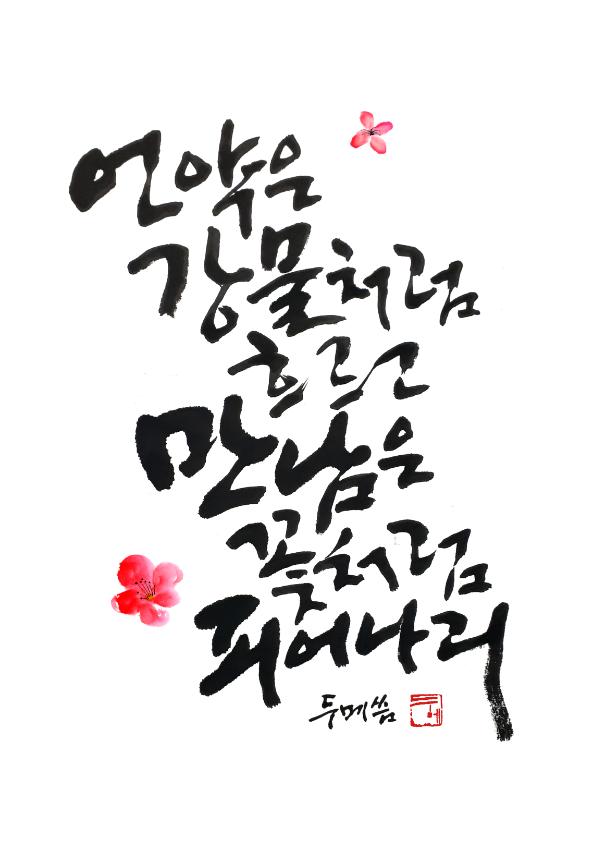 언약은
강물처럼
흐르고
만남은
꽃처럼
피어나리
두메 씀